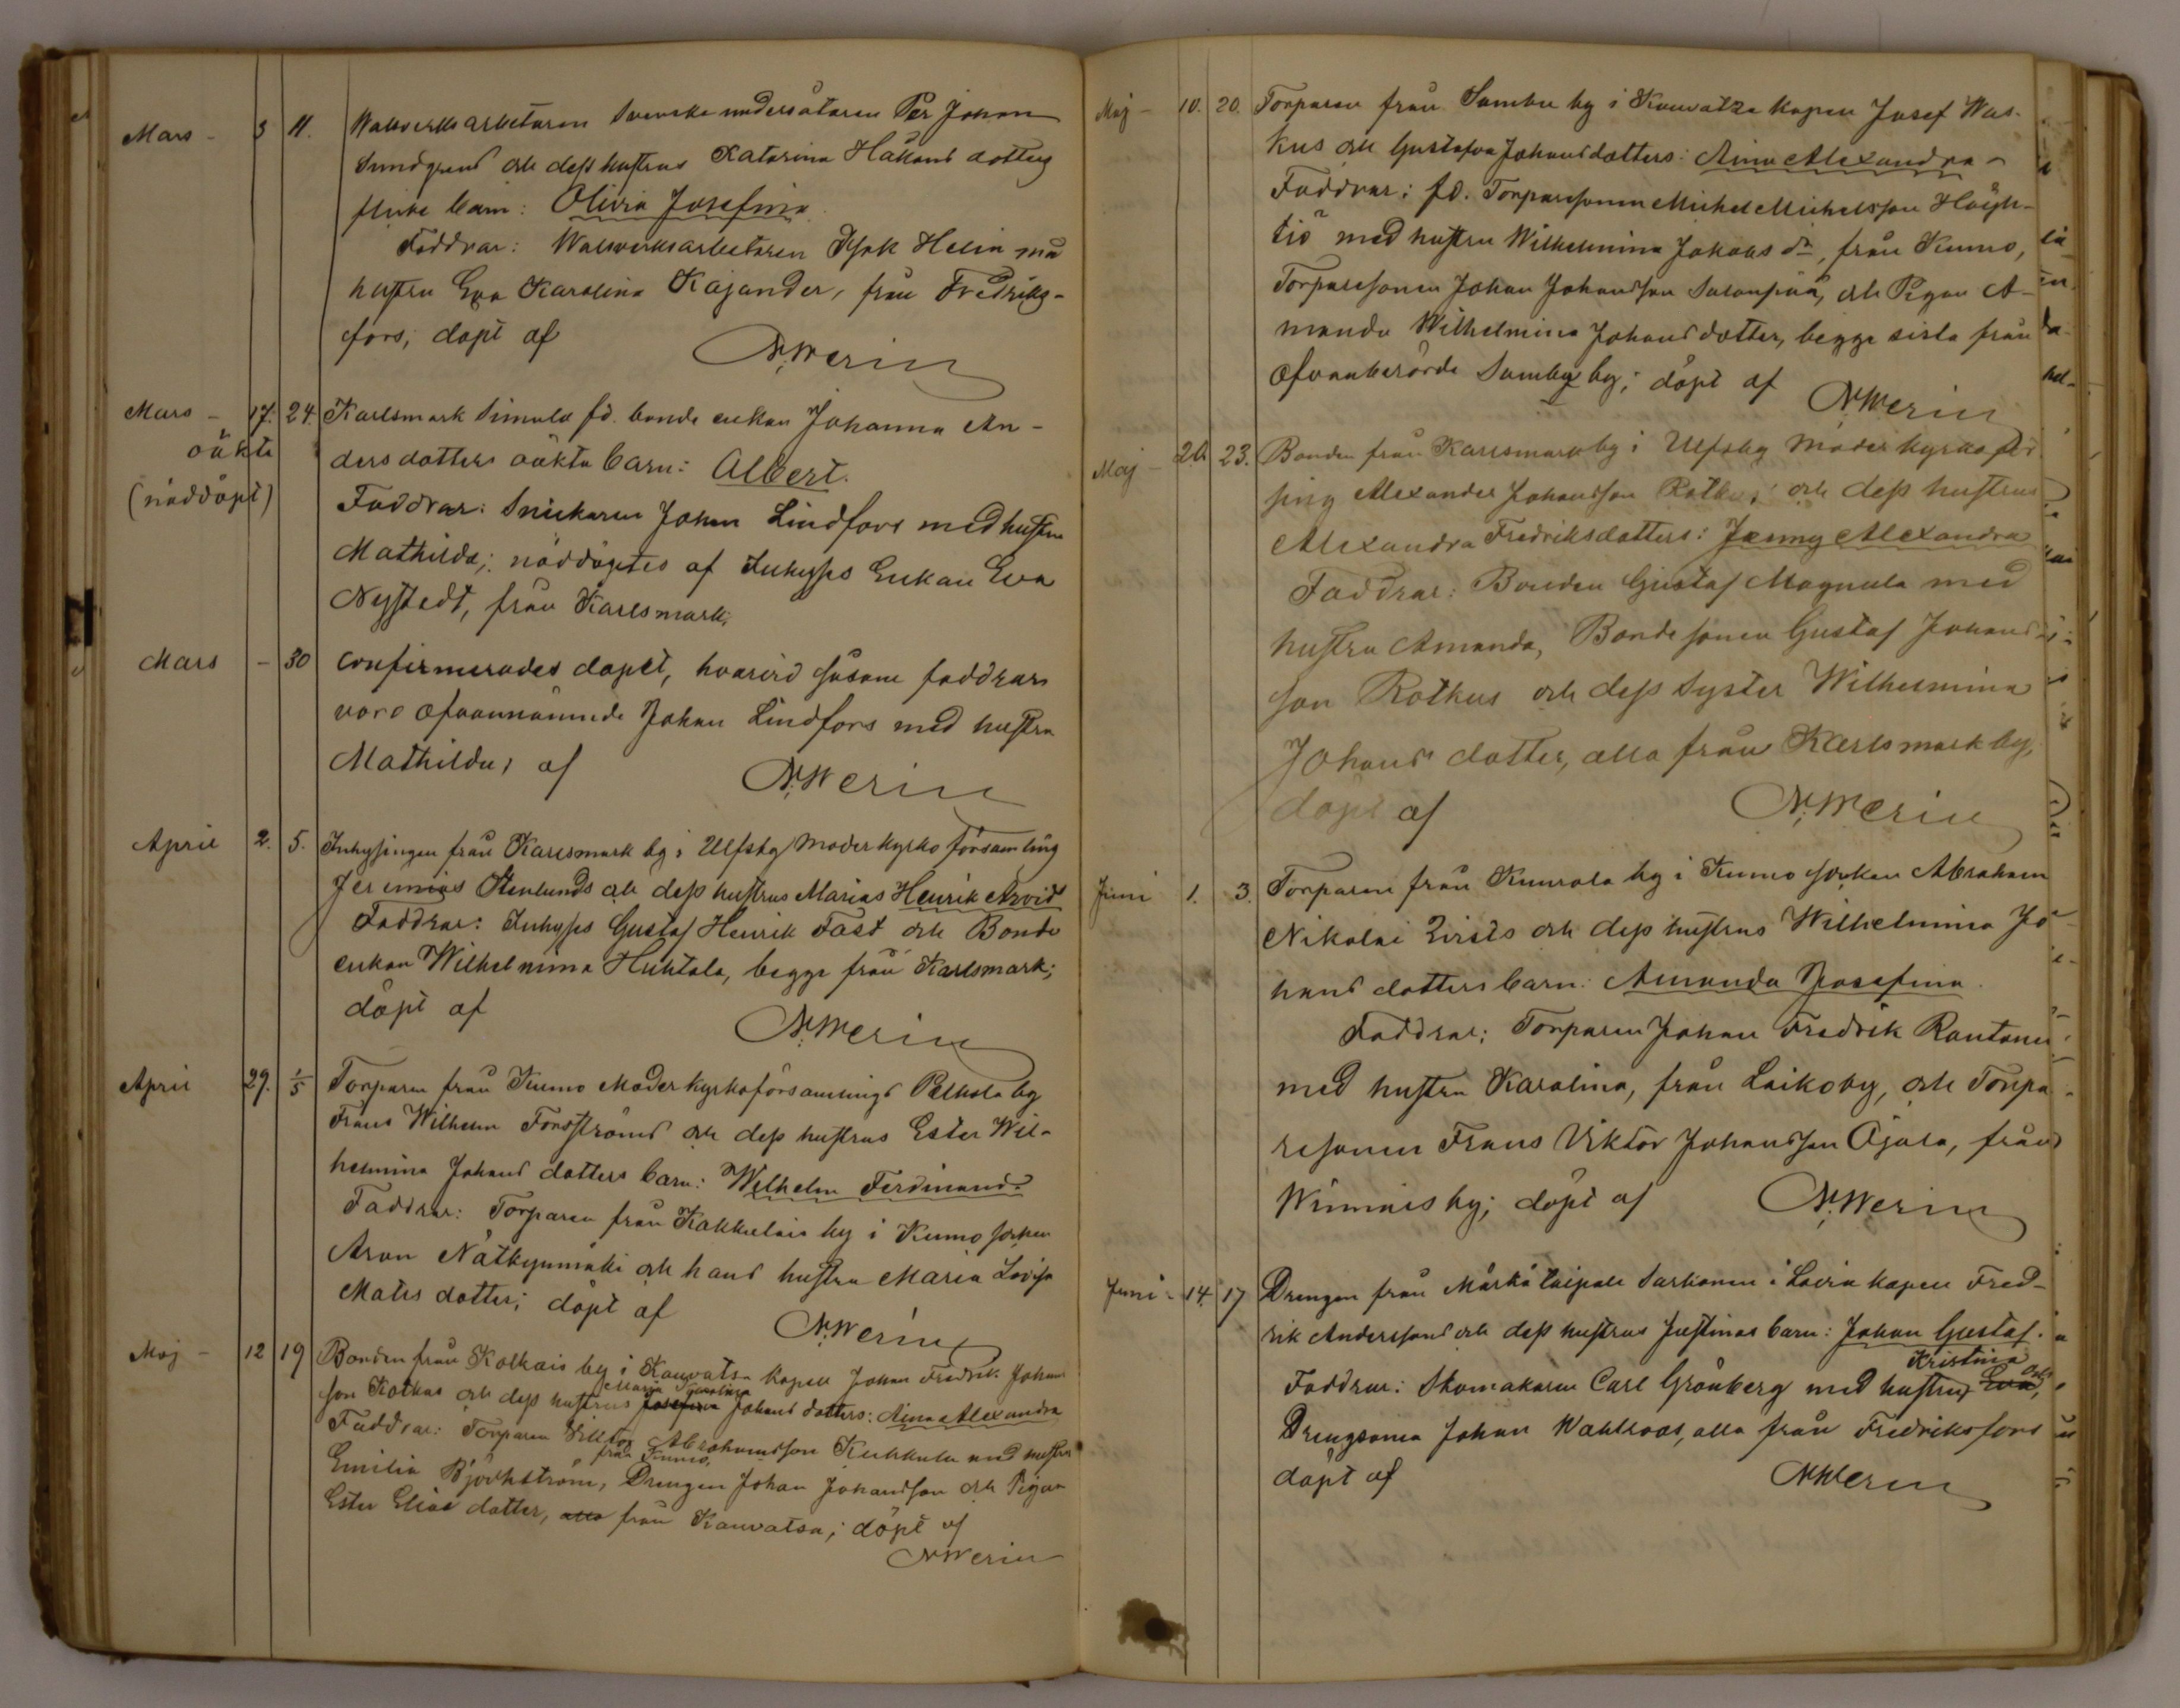 Mars - 3 11. Walsverksarbetaren Svenske undersåtaren Per Johan
Sundgrens och dess hustrus Katarina Håkans dotters
flicke barn: Olivia Josefina.
Faddrar: Walsverksarbetaren Isak Helin med
hustru Eva Karolina Kajander, från Fredriks-
fors; döpt af
N. Werin
Mars - 17. 24. Karlsmark Simula fd. bonde enkan Johanna An-
oäkta dersdotters oäkta barn: Albert.
(nöddöpt) Faddrar: Snickaren Johan Lindfors med hustru
Mathilda; nöddöptes af Inhyses Enkan Eva
Nystedt, från Karlsmark;
Mars - 30 confirmerades dopet, hvarvid såsom faddrar
voro ofvannämnde Johan Lindfors med hustru
Mathilda; af
N. Werin
April 2. 5. Inhysingen från Karlsmark by i Ulfsby Moderkyrko församling
Jeremias Stenlunds och dess hustrus Marias Henrik Arvid
Faddrar: Inhyses Gustaf Henrik Fast och Bonde
enkan Wilhelmina Huhtala, begge från Karlsmark;
döpt af
N. Werin
April 29. 1/5 Torparen från Kumo Moderkyrkoförsamlings Pelhola by
Frans Wilhelm Forsströms och dess hustrus Ester Wil-
helmina Johans dotters barn: Wilhelm Ferdinand.
Faddrar: Torparen från Kakkulais by i Kumo socken
Aron Nätkynmäki och hans hustru Maria Lovisa
Matts dotter; döpt af
N. Werin
Maj - 12 19 Bonden från Kolkais by i Kauvatsa kapell Johan Fredrik Johans
Maria Karolina
son Rotkus och dess hustrus Josefina Johans dotters: Aina Alexandra
Faddrar: Torparen Viktor Abrahamsson Kukkula med hustru
från Kumo,
Emilia Björkström, Drengen Johan Johansson och Pigan
Ester Elias dotter, alla från Kauvatsa; döpt af
N Werin
Maj - 10. 20. Torparen från Sambu by i Kauvatsa kapell Josef Was-
kus och Gustafva Johansdotters: Aina Alexandra -
Faddrar: fd. Torparesonen Michel Michelsson Höyh-
tiö med hustru Wilhelmina Jakobs dr, från Kumo,
Torparesonen Johan Johansson Salonpää, och Pigan A-
manda Wilhelmina Johans dotter, begge sista från
ofvanberörde Sambu by; döpt af
N. Werin
Maj - 20. 23. Bonden från Karlsmark by i Ulfsby Moderkyrkoför
sing Alexander Johansson Rotkus och dess hustrus
Alexandra Fredriksdotters: Jenny Alexandra
Faddrar: Bonden Gustaf Magnula med
hustru Amanda, Bondesonen Gustaf Johans
son Rotkus och dess syster Wilhelmina
Johans dotter, alla från Karlsmark by,
döpt af
N. Werin
Juni 1. 3. Torparen från Kuurola by i Kumo socken Abraham
Nikolai Zirsts och dess hustrus Wilhelmina Jo
hans dotters barn: Amanda Josefina.
Faddrar: Torparen Johan Fredrik Rantanen
med hustru Karolina, från Laikoby, och Torpa
resonen Frans Viktor Johansson Ojala, från
Winnais by; döpt af
N. Werin
Juni - 14. 17 Drengen från Märkätaipale Sarkonen i Lavia kapell Fred-
rik Anderssons och dess hustrus Justinas barn: Johan Gustaf.
Kristina och
Faddrar: Skomakaren Carl Grönberg med hustru Eva,
Drengsonen Johan Wahlroos, alla från Fredriksfors
döpt af
N Werin